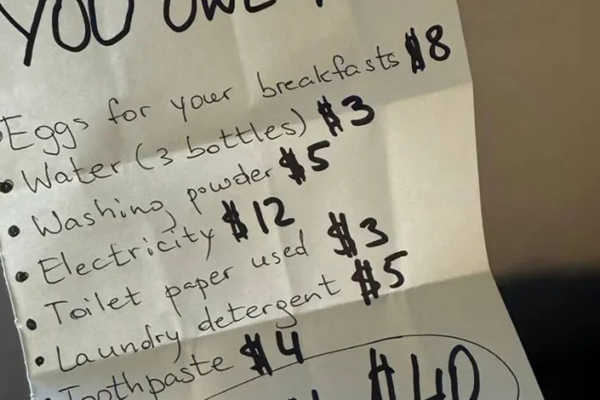 YOU OWE
Eggs for your breakfasts $8
• Water (3 bottles) $3
• Washing powder $5
• Electricity $12
• Toilet paper used $3
• Laundry detergent $5
• Toothpaste $4
$40